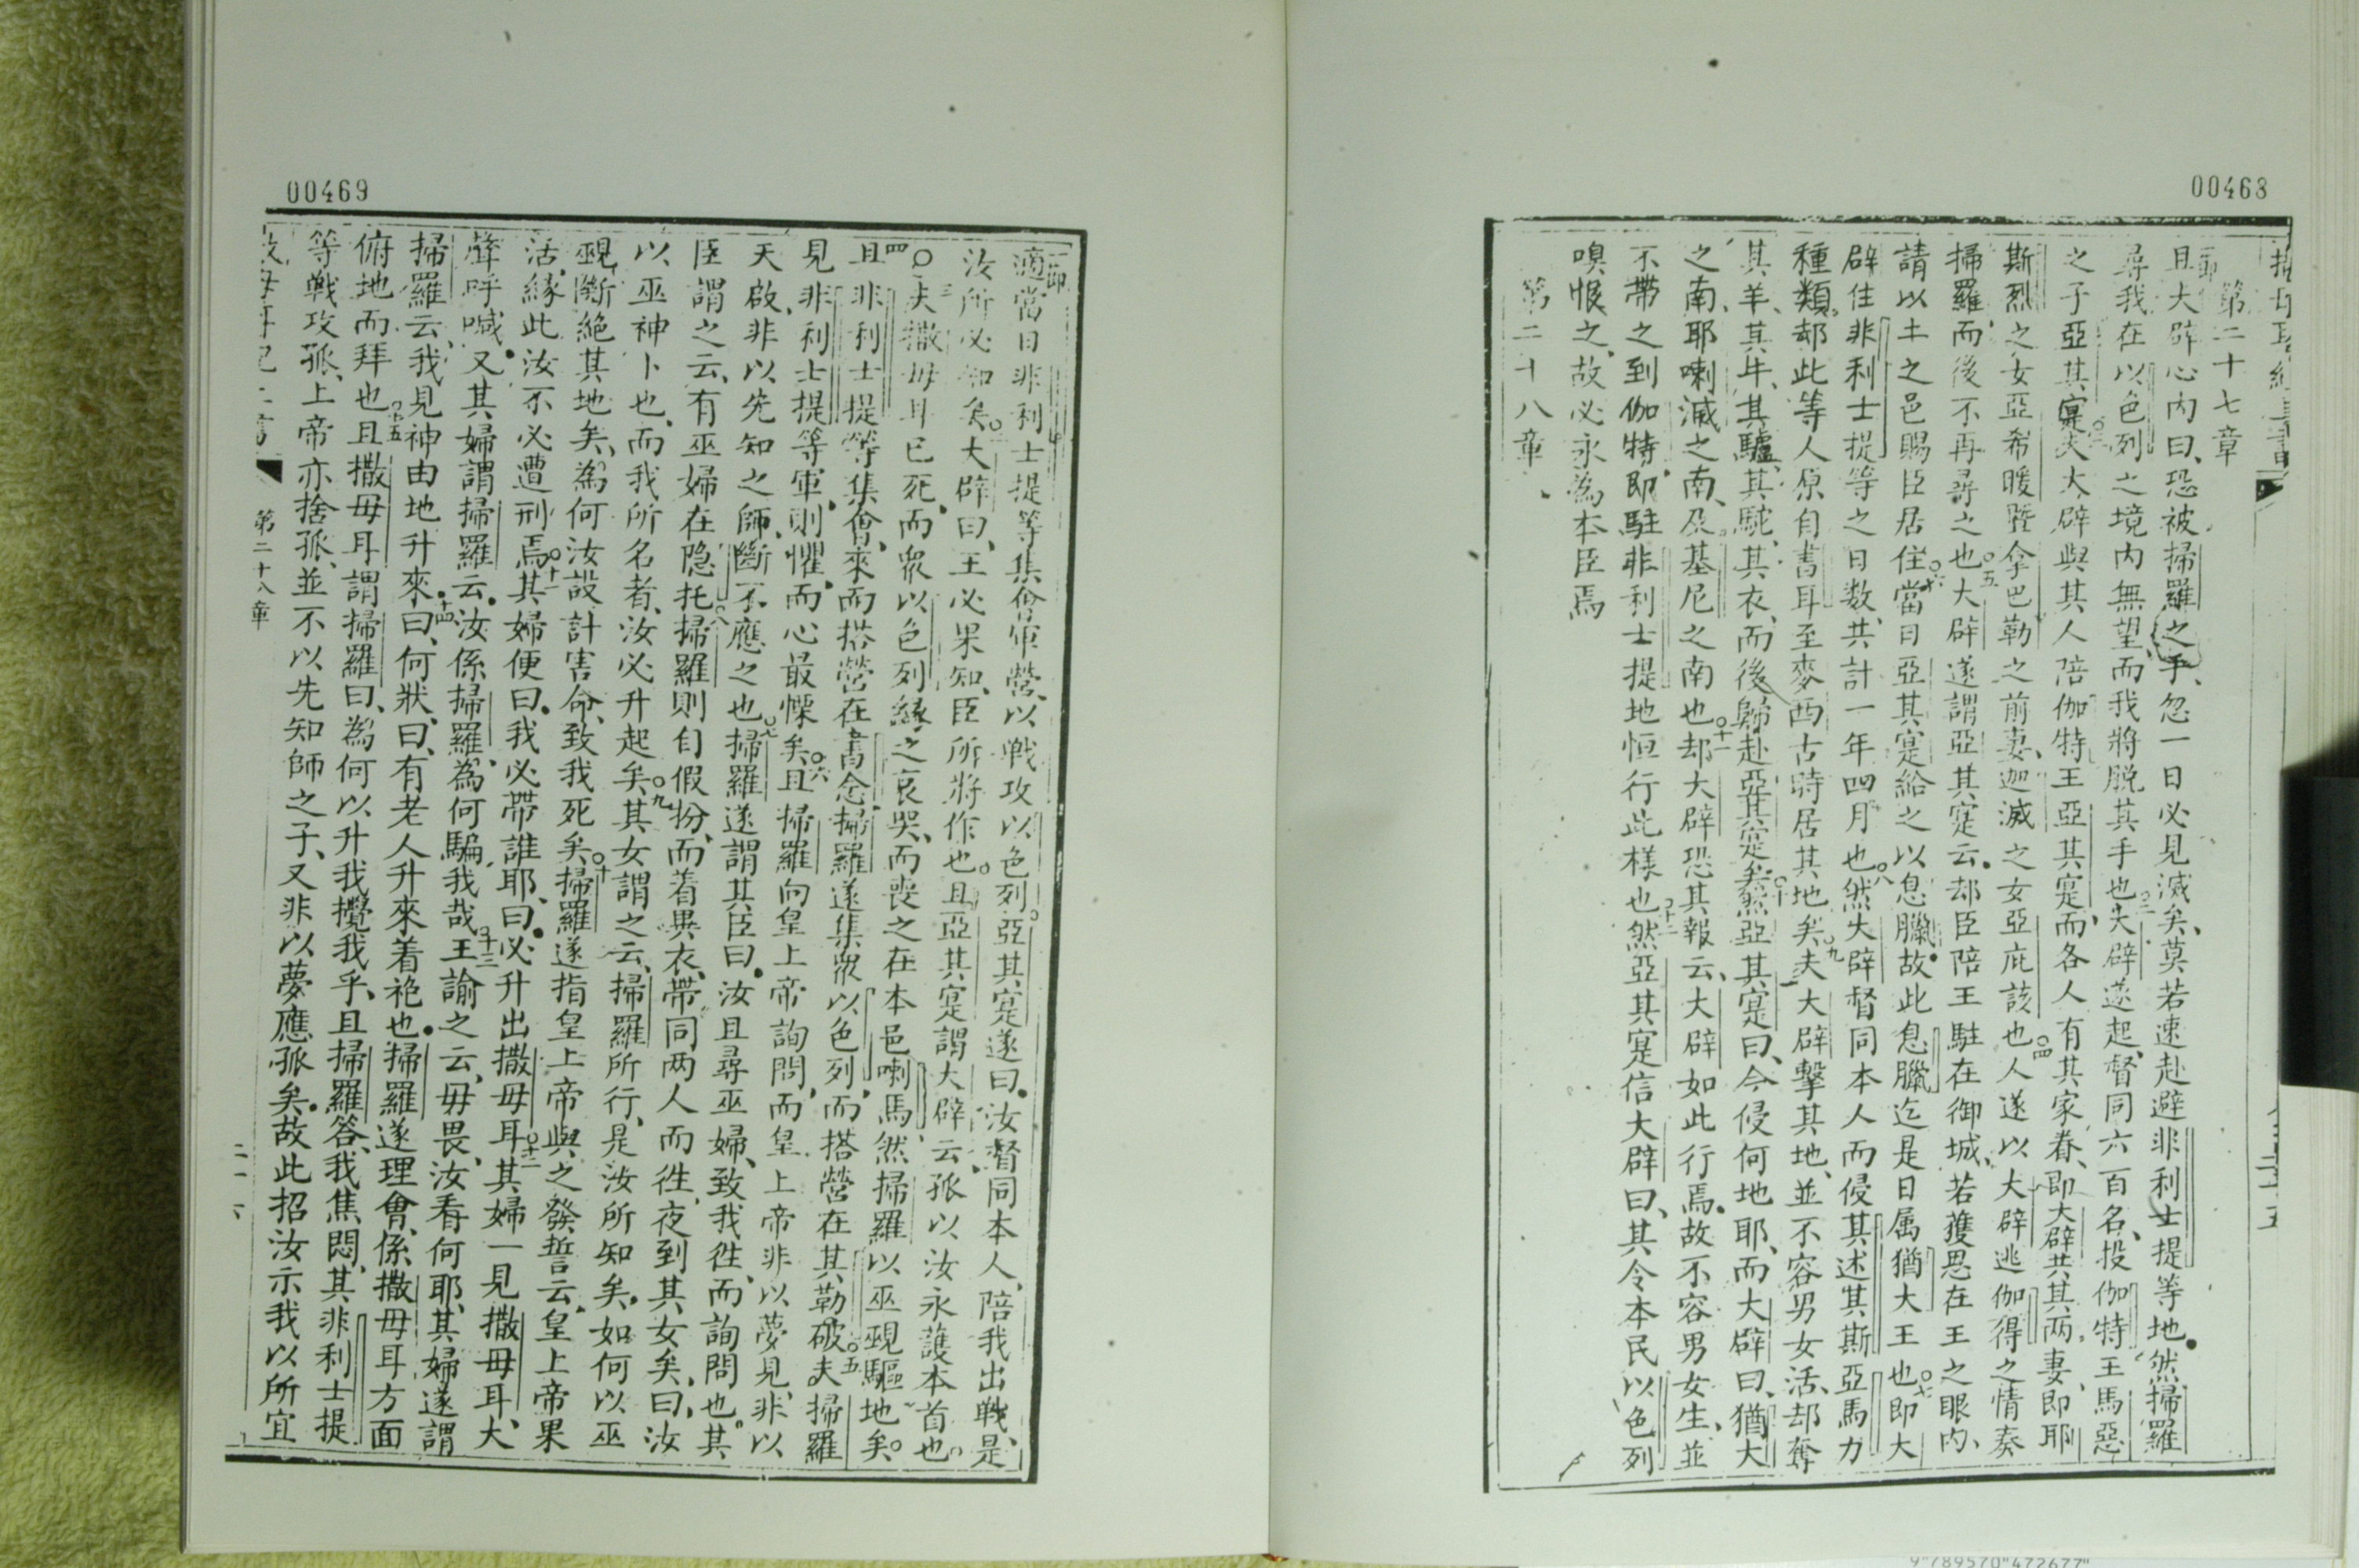 00468
第二十七章
且大辟心內曰、恐被掃羅之手、忽一日必見滅矣、莫若速赴避非利士提等地。然掃羅
尋我在以色列之境內無望、而我將脫其手也大辟遂起、督同六百名、投伽特王馬惡
之子亞其寔夫大辟與其人陪伽特王亞其寔、而各人有其家眷、即大辟共其兩妻、即耶
斯烈之女亞希暖暨拿巴勒之前妻、迦滅之女亞庇該也人遂以大辟逃伽得之情奏
掃羅而後不再尋之也大辟遂謂亞其寔云、却臣陪王駐在御城、若獲恩在王之眼內、
請以土之邑賜臣居住當日亞其寔給之以息臘、故此息臘迄是日属猶大王也即大
辟住非利士提等之日数、共計一年四月也然大辟督同本人而侵其述其斯亞馬力
種類、却此等人原自書耳至麥西古時居其地矣夫大辟擊其地、並不容男女活、却奪
其羊、其牛、其驢、其駝、其衣、而後歸赴亞其寔矣然亞其寔曰、今侵何地耶、而大辟曰、猶大
之南、耶喇滅之南、及基尼之南也却大辟恐其報云、大辟如此行焉、故不容男女生、並
不帶之到伽特、即駐非利士提地恒行此樣也然亞其寔信大辟曰、其令本民以色列
嗅恨之、故必永為本臣焉
第二十八章
二十五
00469
適當日非利士提等集會軍營、以戰攻以色列。亞其寔遂曰、汝督同本人、陪我出戰、是
汝所必知矣大辟曰、王必果知、臣所將作也。且亞其寔謂大辟云孤以汝永護本首也。
夫撒母耳已死、而眾以色列緣之哀哭、而喪之在本邑喇馬、然掃羅以巫覡驅地矣。
且非利士提等集會、來而搭營在書念掃羅遂集眾以色列、而搭營在其勒破夫掃羅
見非利士提等軍、則懼、而心最慄矣且掃羅向皇上帝詢問、而皇上帝非以夢見、非以
天啟、非以先知之師、斷不應之也掃羅遂謂其臣曰、汝且尋巫婦、致我徃、而詢問也。其
臣謂之云、有巫婦在隐托掃羅則自假扮、而着異衣、帶同两人而徃、夜到其女矣、曰、汝
以巫神卜也、而我所名者、汝必升起矣其女謂之云、掃羅所行、是汝所知矣、如何以巫
覡斷絕其地矣、為何汝設計害命、致我死矣掃羅遂指皇上帝與之發誓云、皇上帝果
活、緣此汝不必遭刑焉其婦便曰、我必帶誰耶、曰、必升出撒母耳其婦一見撒母耳、大
聲呼喊、又其婦謂掃羅云、汝係掃羅、為何騙我哉王諭之云、毋畏、汝看何耶、其婦遂謂
掃羅云、我見神由地升來曰、何狀、曰、有老人升來着袍也、掃羅遂理會、係撒母耳方面
俯地而拜也且撒母耳謂掃羅曰、為何以升我攪我乎、且掃羅答、我焦悶、其非利士提
等戰攻孤、上帝亦捨孤、並不以先知師之子、又非以夢應孤矣、故此招汝示我以所宜
第二十八章